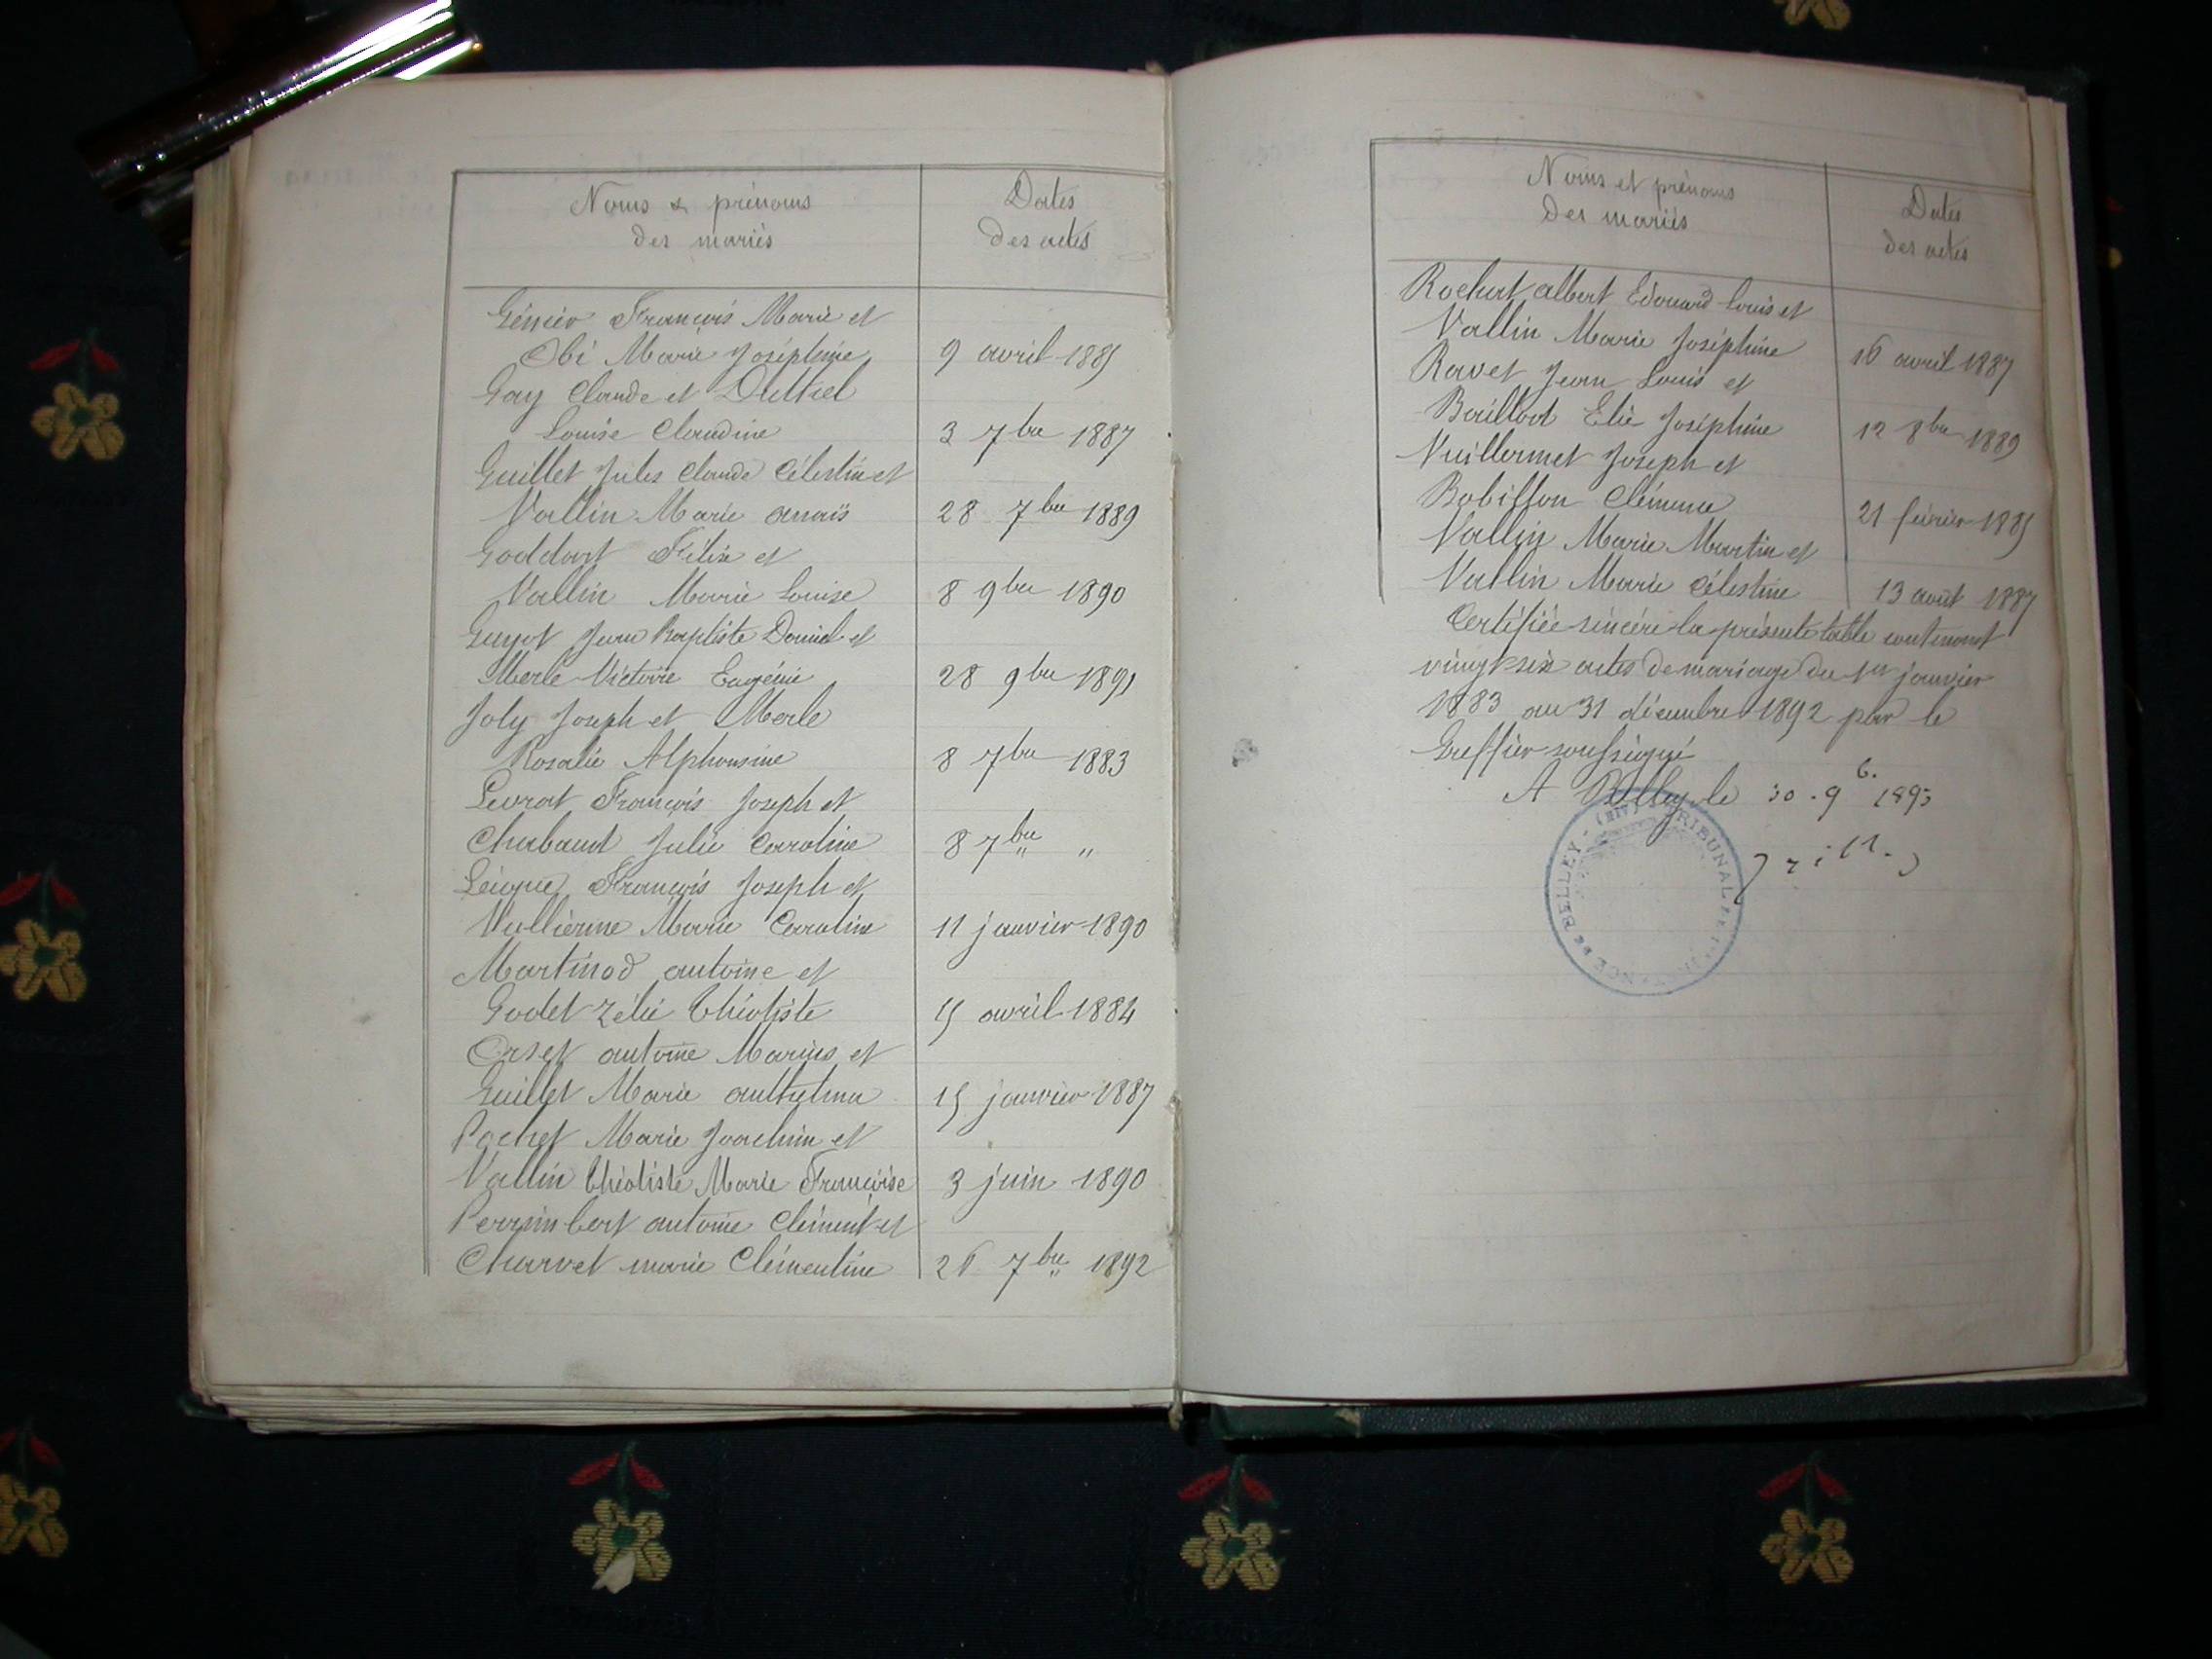 Noms & prénoms
des mariés
Dates
des actes
Génier François Marie et
Obi Marie Joséphine 9 avril 1885
Gay Claude et Duttiel
Louise Claudine 3 7bre 1887
Guillet Jules Claude Célestin et
Vallin Marie Anaïs 28 7bre 1889
Goddart Félix et
Vallin Marie Louise 8 9bre 1890
Guyot Jean Baptiste Daniel et
Merle Victoire Eugénie 28 9bre 1891
Joly Joseph et Merle
Rosalie Alphonsine 8 7bre 1883
Levrat François Joseph et
Chabaud Julie Caroline 8 7bre " "
François Joseph et
Vullierme Marie Caroline 11 janvier 1890
Martinod antoine et
Godet Zélie Théotiste 15 avril 1884
Orset antoine Marius et
Guillet Marie anthelma 15 janvier 1887
Pochet Marie Joachim et
Vallin Théotiste Marie Françoise 3 juin 1890
Perrimbert antoine Clément et
Charvet marie Clémentine 26 7bre 1892
Noms et prénoms
des mariés
Dates
des actes
Rochat albert Edouard Louis et
Vallin Marie Joséphine 16 avril 1887
Ravet Jean Louis et
Bouillod Elie Joséphine 12 8bre 1889
Vuillermet Joseph et
Robillon Clémence 21 février 1885
Vallin Marie Martin et
Vallin Marie Célestine 13 août 1887
Certifiée sincère la présente table contenant
vingt six actes de mariage du 1er janvier
1883 au 31 décembre 1892 par le
Greffier soussigné
A Belley le 30 - 9b. 1893
TRIBUNAL DE 1re INSTANCE DE BELLEY (AIN)